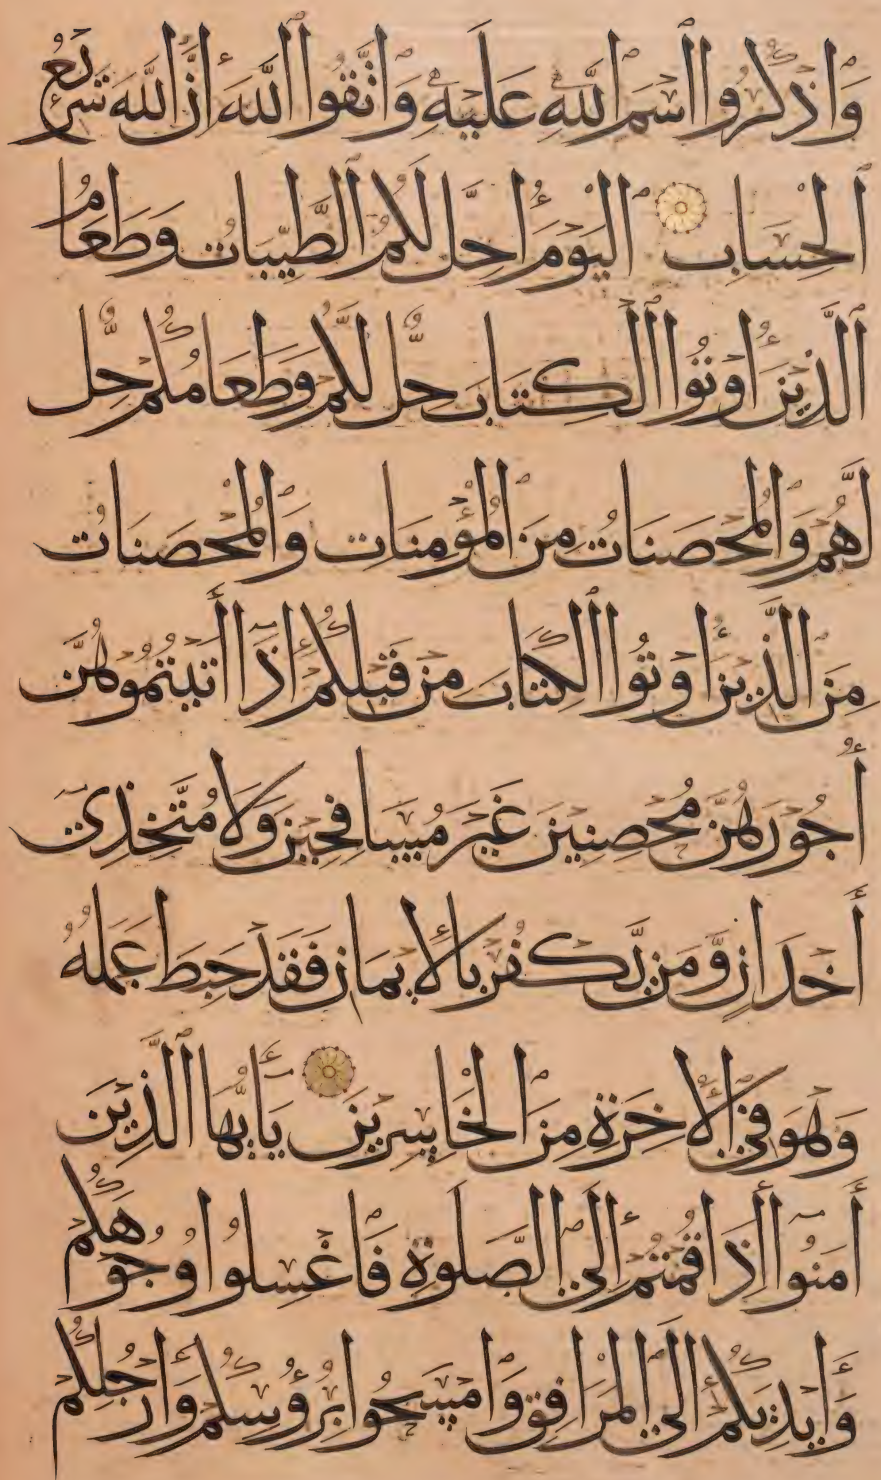 وَاذْكُرُوا اسْمَ اللَّهِ عَلَيْهِ وَاتَّقُوا اللَّهَ إِنَّ اللَّهَ سَرِيعُ
الْحِسَابِ الْيَوْمَ أُحِلَّ لَكُمُ الطَّيِّبَاتُ وَطَعَامُ
الَّذِينَ أُوتُوا الْكِتَابَ حِلٌّ لَّكُمْ وَطَعَامُكُمْ حِلٌّ
لَّهُمْ وَالْمُحْصَنَاتُ مِنَ الْمُؤْمِنَاتِ وَالْمُحْصَنَاتُ
مِنَ الَّذِينَ أُوتُوا الْكِتَابَ مِن قَبْلِكُمْ إِذَا آتَيْتُمُوهُنَّ
أُجُورَهُنَّ مُحْصِنِينَ غَيْرَ مُسَافِحِينَ وَلَا مُتَّخِذِي
أَخْدَانٍ وَّمَن يَّكْفُرْ بِالْإِيمَانِ فَقَدْ حَبِطَ عَمَلُهُ
وَهُوَ فِي الْآخِرَةِ مِنَ الْخَاسِرِينَ يَا أَيُّهَا الَّذِينَ
آمَنُوا إِذَا قُمْتُمْ إِلَى الصَّلَوةِ فَاغْسِلُوا وُجُوهَكُمْ
وَأَيْدِيَكُمْ إِلَى الْمَرَافِقِ وَامْسَحُوا بِرُؤُسِكُمْ وَأَرْجُلِكُمْ